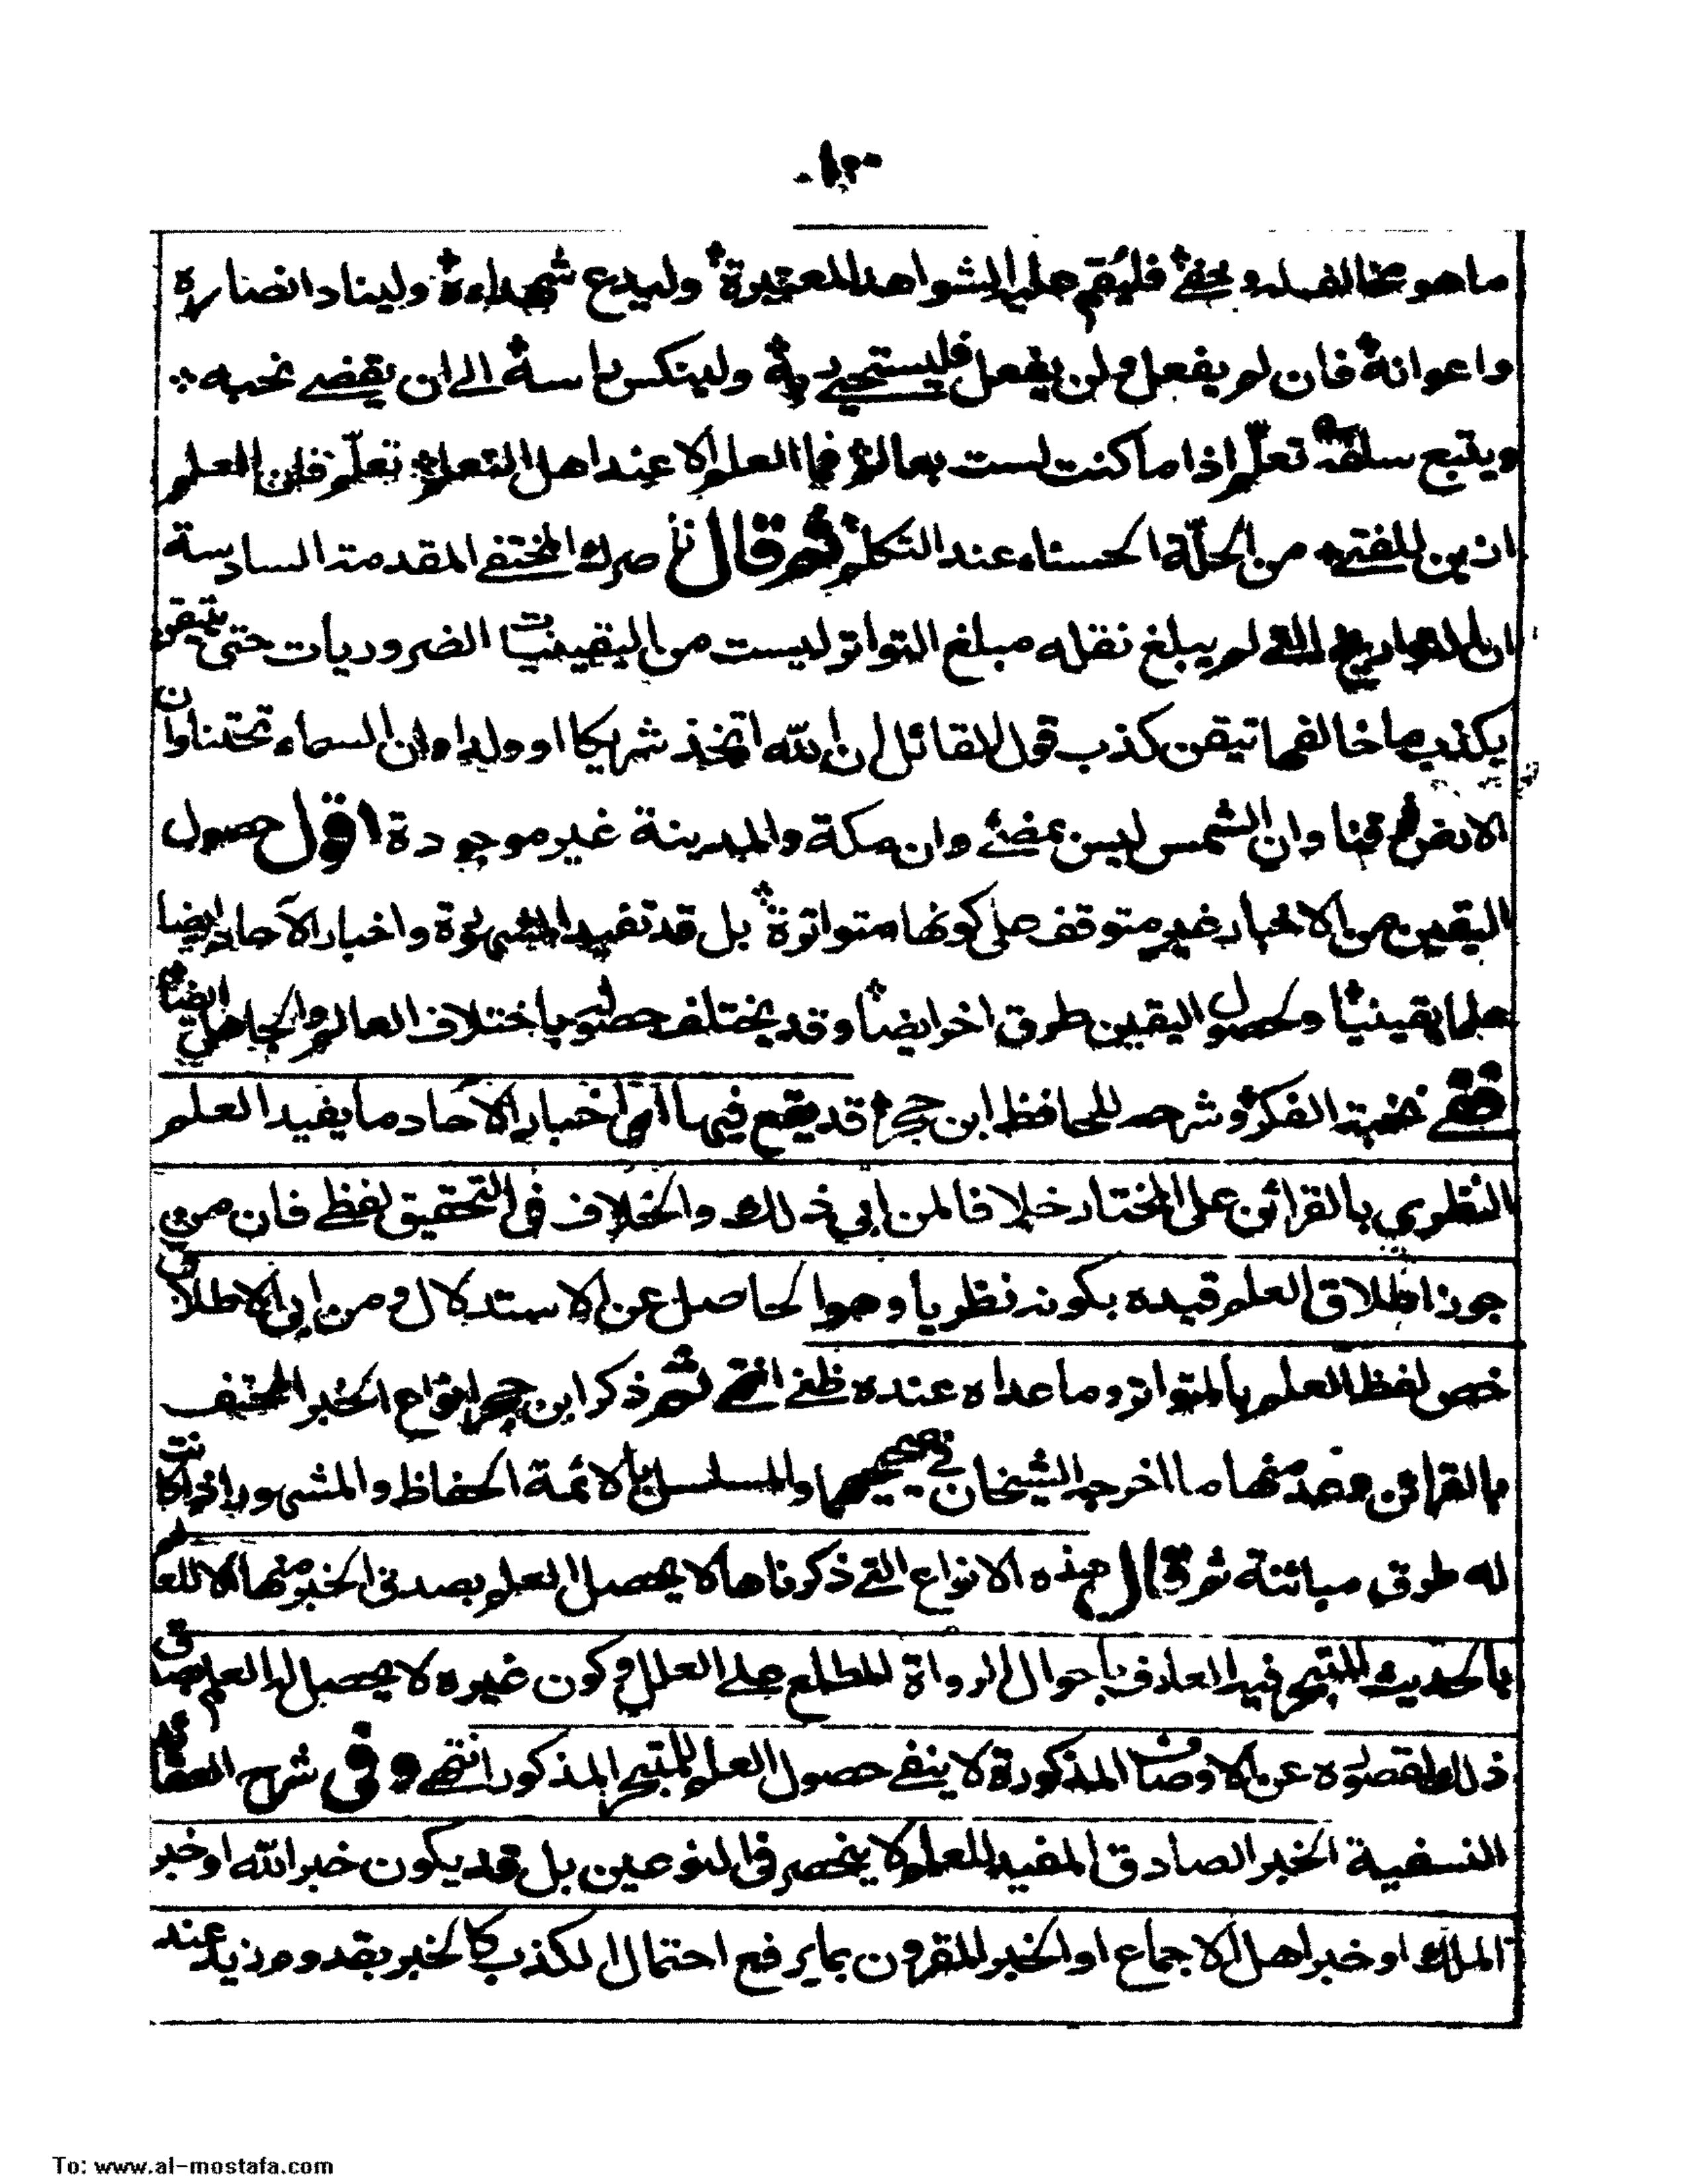 ما هو مخالف له ويخفى فليقم عليه الشواهد المعتبرة وليدع شهداءه وليناد انصاره
واعوانه فان لم يفعل ولن يفعل فليستحيي ربه ولينكس راسه الى ان يقضى نحبه
ويتبع تعلّم اذا ما كنت لست بعالم فما العلم الا عند اهل التعلم تعلّم فان العلم
ازين للفتى من الحلّة الحسناء عند التكلم ثم قال ناصرك المختفى المقدمة السادسة
ان التواريخ التى لم يبلغ نقله مبلغ التواتر ليست من اليقينيات الضروريات حتى يتيقن
بكذب ما خالفها تيقن كذب قول القائل ان الله اتخذ شريكا او ولدا وان السماء تحتنا وان
الارض فوقنا وان الشمس ليس بمضئ وان مكة والمدينة غير موجودة اقول حصول
اليقين من الاخبار غير متوقف على كونها متواترة بل قد تفيد المشهورة واخبار الآحاد ايضا
علما يقينيا ولحصول اليقين طرق اخر ايضا وقد يختلف حصوله باختلاف العالم والجاهل ايضا
ففى نخبة الفكر وشرحه للحافظ ابن حجر قد يقع فيها اى اخبار الآحاد ما يفيد العلم
النظري بالقرائن على المختار خلافا لمن ابى ذلك والخلاف فى التحقيق لفظى فان من
جوز اطلاق العلم قيده بكونه نظريا وهو الحاصل عن الاستدلال ومن ابى الاطلاق
خص لفظ العلم بالمتواتر وما عداه عنده ظنى انتهى ثم ذكر ابن حجر انواع الخبر المحتف
بالقرائن وعد منها ما اخرجه الشيخان فى صحيحيهما والمسلسل بالائمة الحفاظ والمشهور اذا كانت
له طرق مبائنة ثم قال هذه الانواع التى ذكرناها لا يحصل العلم بصدق الخبر منها الا للعالم
بالحديث المتبحر فيه العارف باحوال الرواة المطلع على العلل وكون غيره لا يحصل له العلم بصدق
ذلك لقصوره عن الاوصاف المذكورة لا ينفى حصول العلم للمتبحر المذكور انتهى وفى شرح العقائد
النسفية الخبر الصادق المفيد للعلم لا ينحصر فى النوعين بل قد يكون خبر الله او خبر
الملك او خبر اهل الاجماع او الخبر المقرون بما يرفع احتمال الكذب كالخبر بقدوم زيد عند
To: www.al-mostafa.com